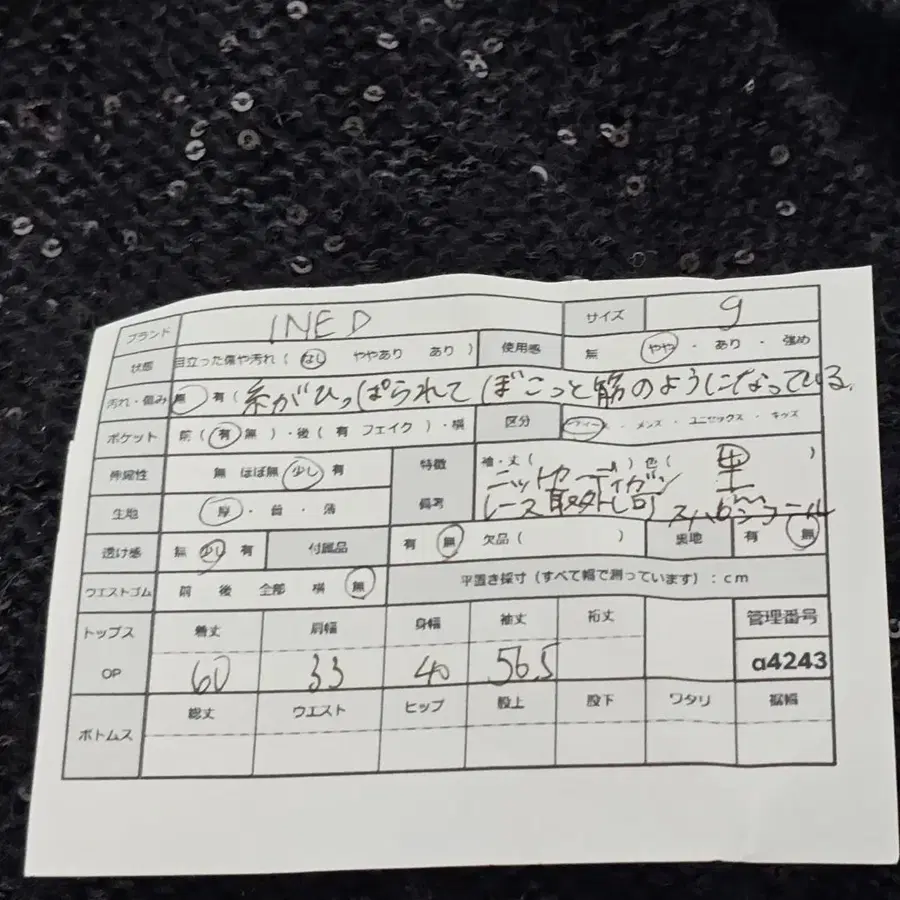 ブランド INED サイズ 9
状態 目立った傷や汚れ ( なし ややあり あり ) 使用感 無 やや ・ あり ・ 強め
汚れ・傷み 無 有 ( 糸がひっぱられて ぼこっと筋のようになっている。
ポケット 前 ( 有 無 ) ・ 後 ( 有 フェイク ) ・ 横 区分 ・ メンズ ・ ユニセックス ・ キッズ
伸縮性 無 ほぼ無 少し 有 特徴 袖・丈 ( ) 色 ( 黒 )
ニットカーディガン
生地 厚 ・ 普 ・ 薄 備考 レース取外し可 スパンコール
透け感 無 少し 有 付属品 有 無 欠品 ( ) 裏地 有 無
ウエストゴム 前 後 全部 横 無 平置き採寸 (すべて幅で測っています) : cm
トップス 着丈 肩幅 身幅 袖丈 裄丈 管理番号
OP 60 33 40 56.5 a4243
ボトムス 総丈 ウエスト ヒップ 股上 股下 ワタリ 裾幅